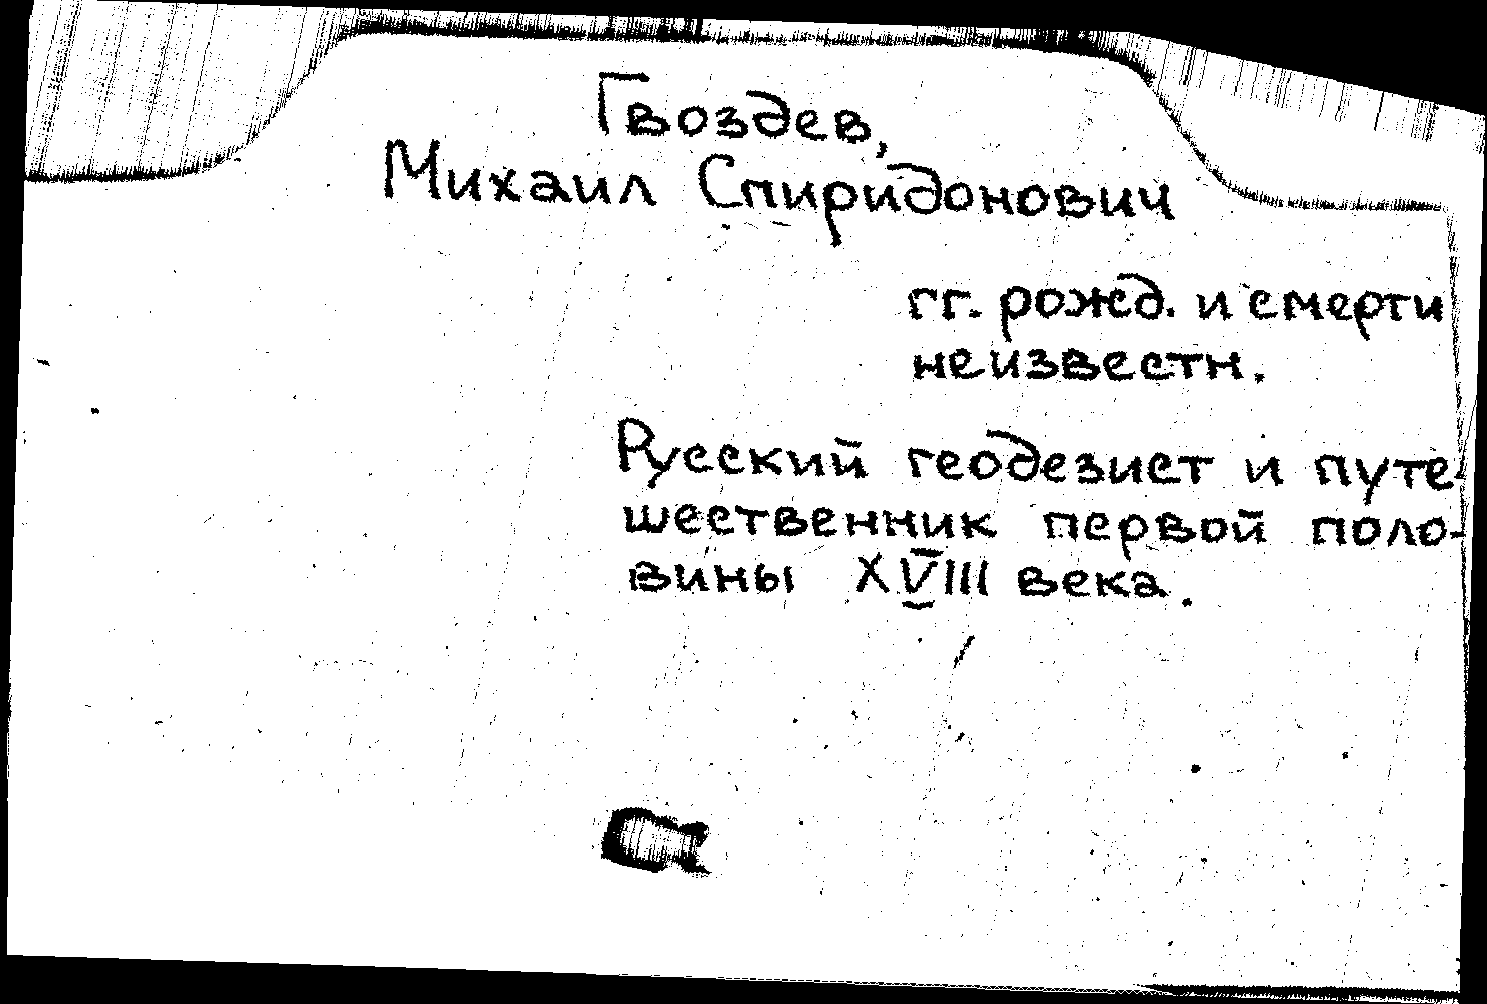 Гвоздев,
Михаил Спиридонович
гг. рожд. и смерти
неизвестн.
Русский геодезист и путе-
шественник первой поло-
вины XVIII века.